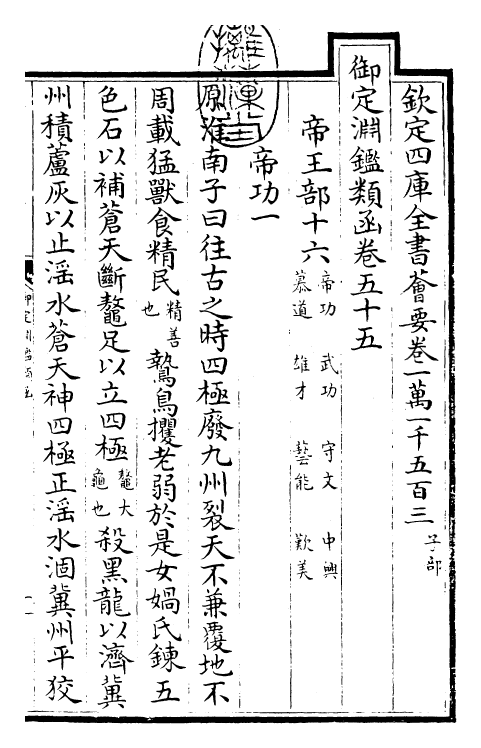 欽定四庫全書薈要卷一萬一千五百三 子部
御定淵鑑類函卷五十五
帝王部十六 帝功 武功 守文 中興 慕道 雄才 藝能 歎美
帝功一
原淮南子曰往古之時四極廢九州裂天不兼覆地不
周載猛獸食精民 精善也 鷙鳥攫老弱於是女媧氏鍊五
色石以補蒼天斷鼇足以立四極 鼇大龜也 殺黑龍以濟冀
州積蘆灰以止淫水蒼天神四極正淫水涸冀州平狡